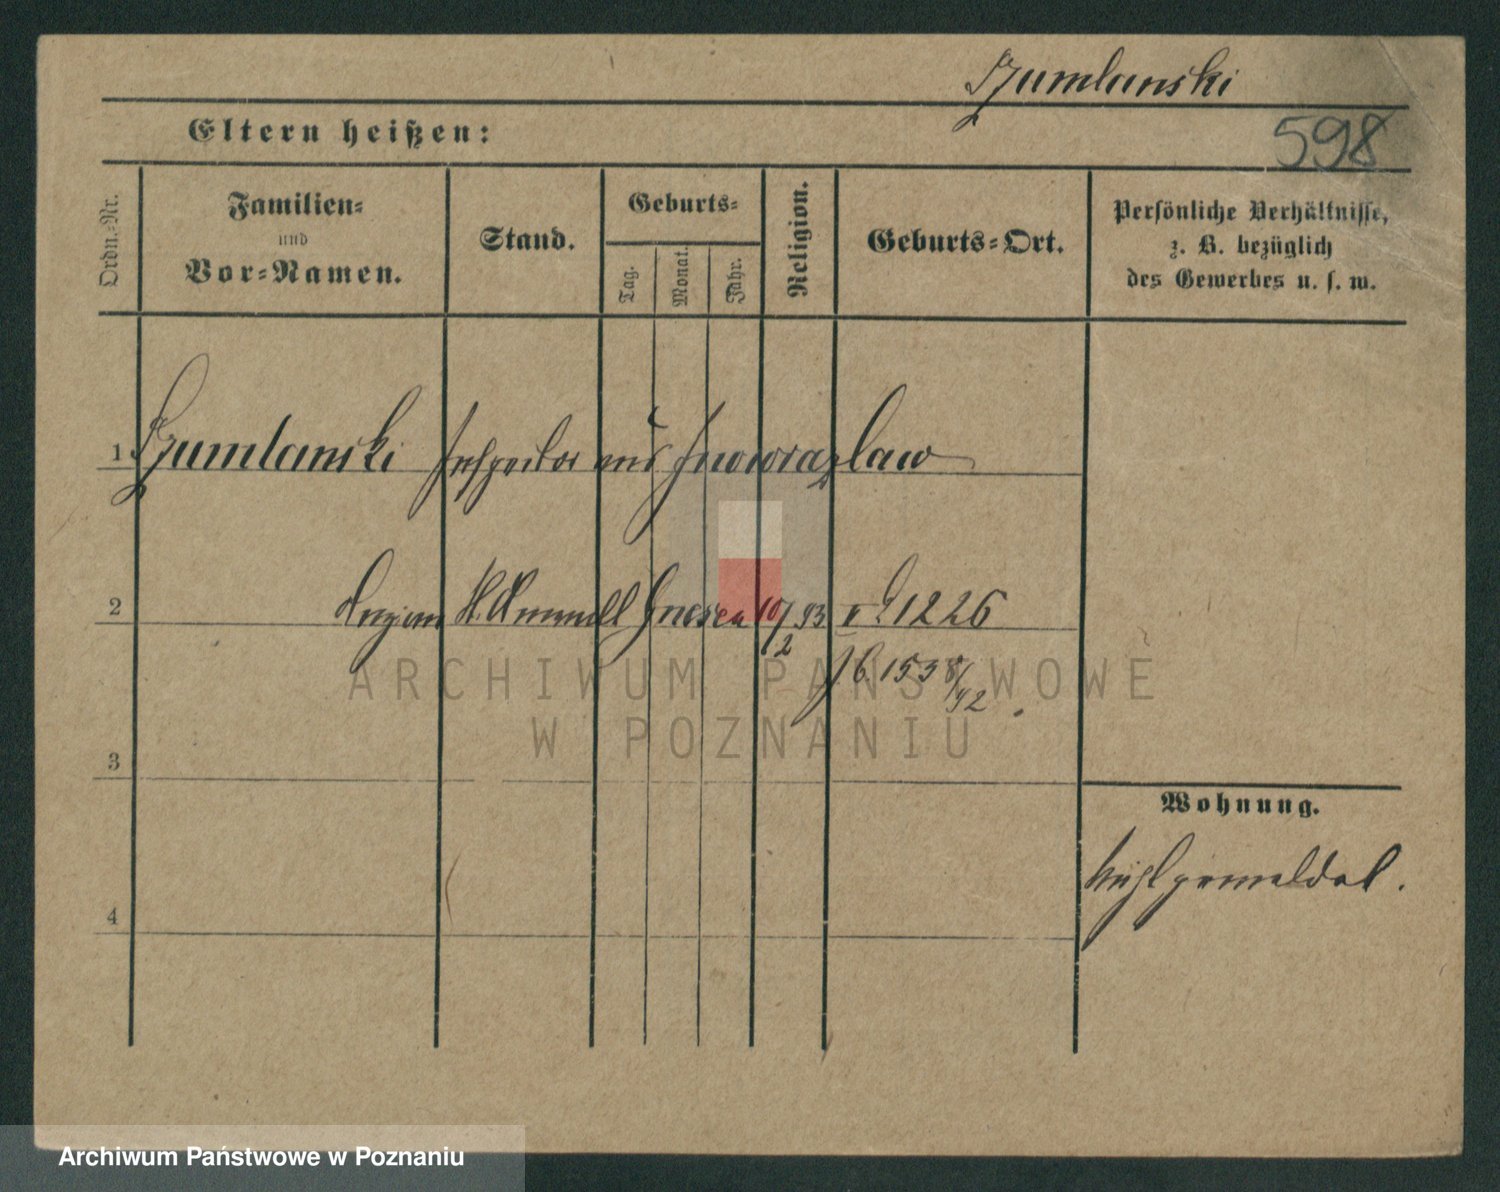 Szumlanski
598
Eltern heißen:
Ordn.-Nr.
Familien-
und
Vor-Namen.
Stand.
Geburts-
Tag.
Monat.
Jahr.
Religion.
Geburts-Ort.
Persönliche Verhältnisse,
z. B. bezüglich
des Gewerbes u. s. w.
1 Szumlanski Inspector aus Inowrazlaw
2 Gnesen 10/2 93 1226
1538/92
3
4
Wohnung.
nicht gemeldet.
ARCHIWUM PAŃSTWOWE
W POZNANIU
Archiwum Państwowe w Poznaniu